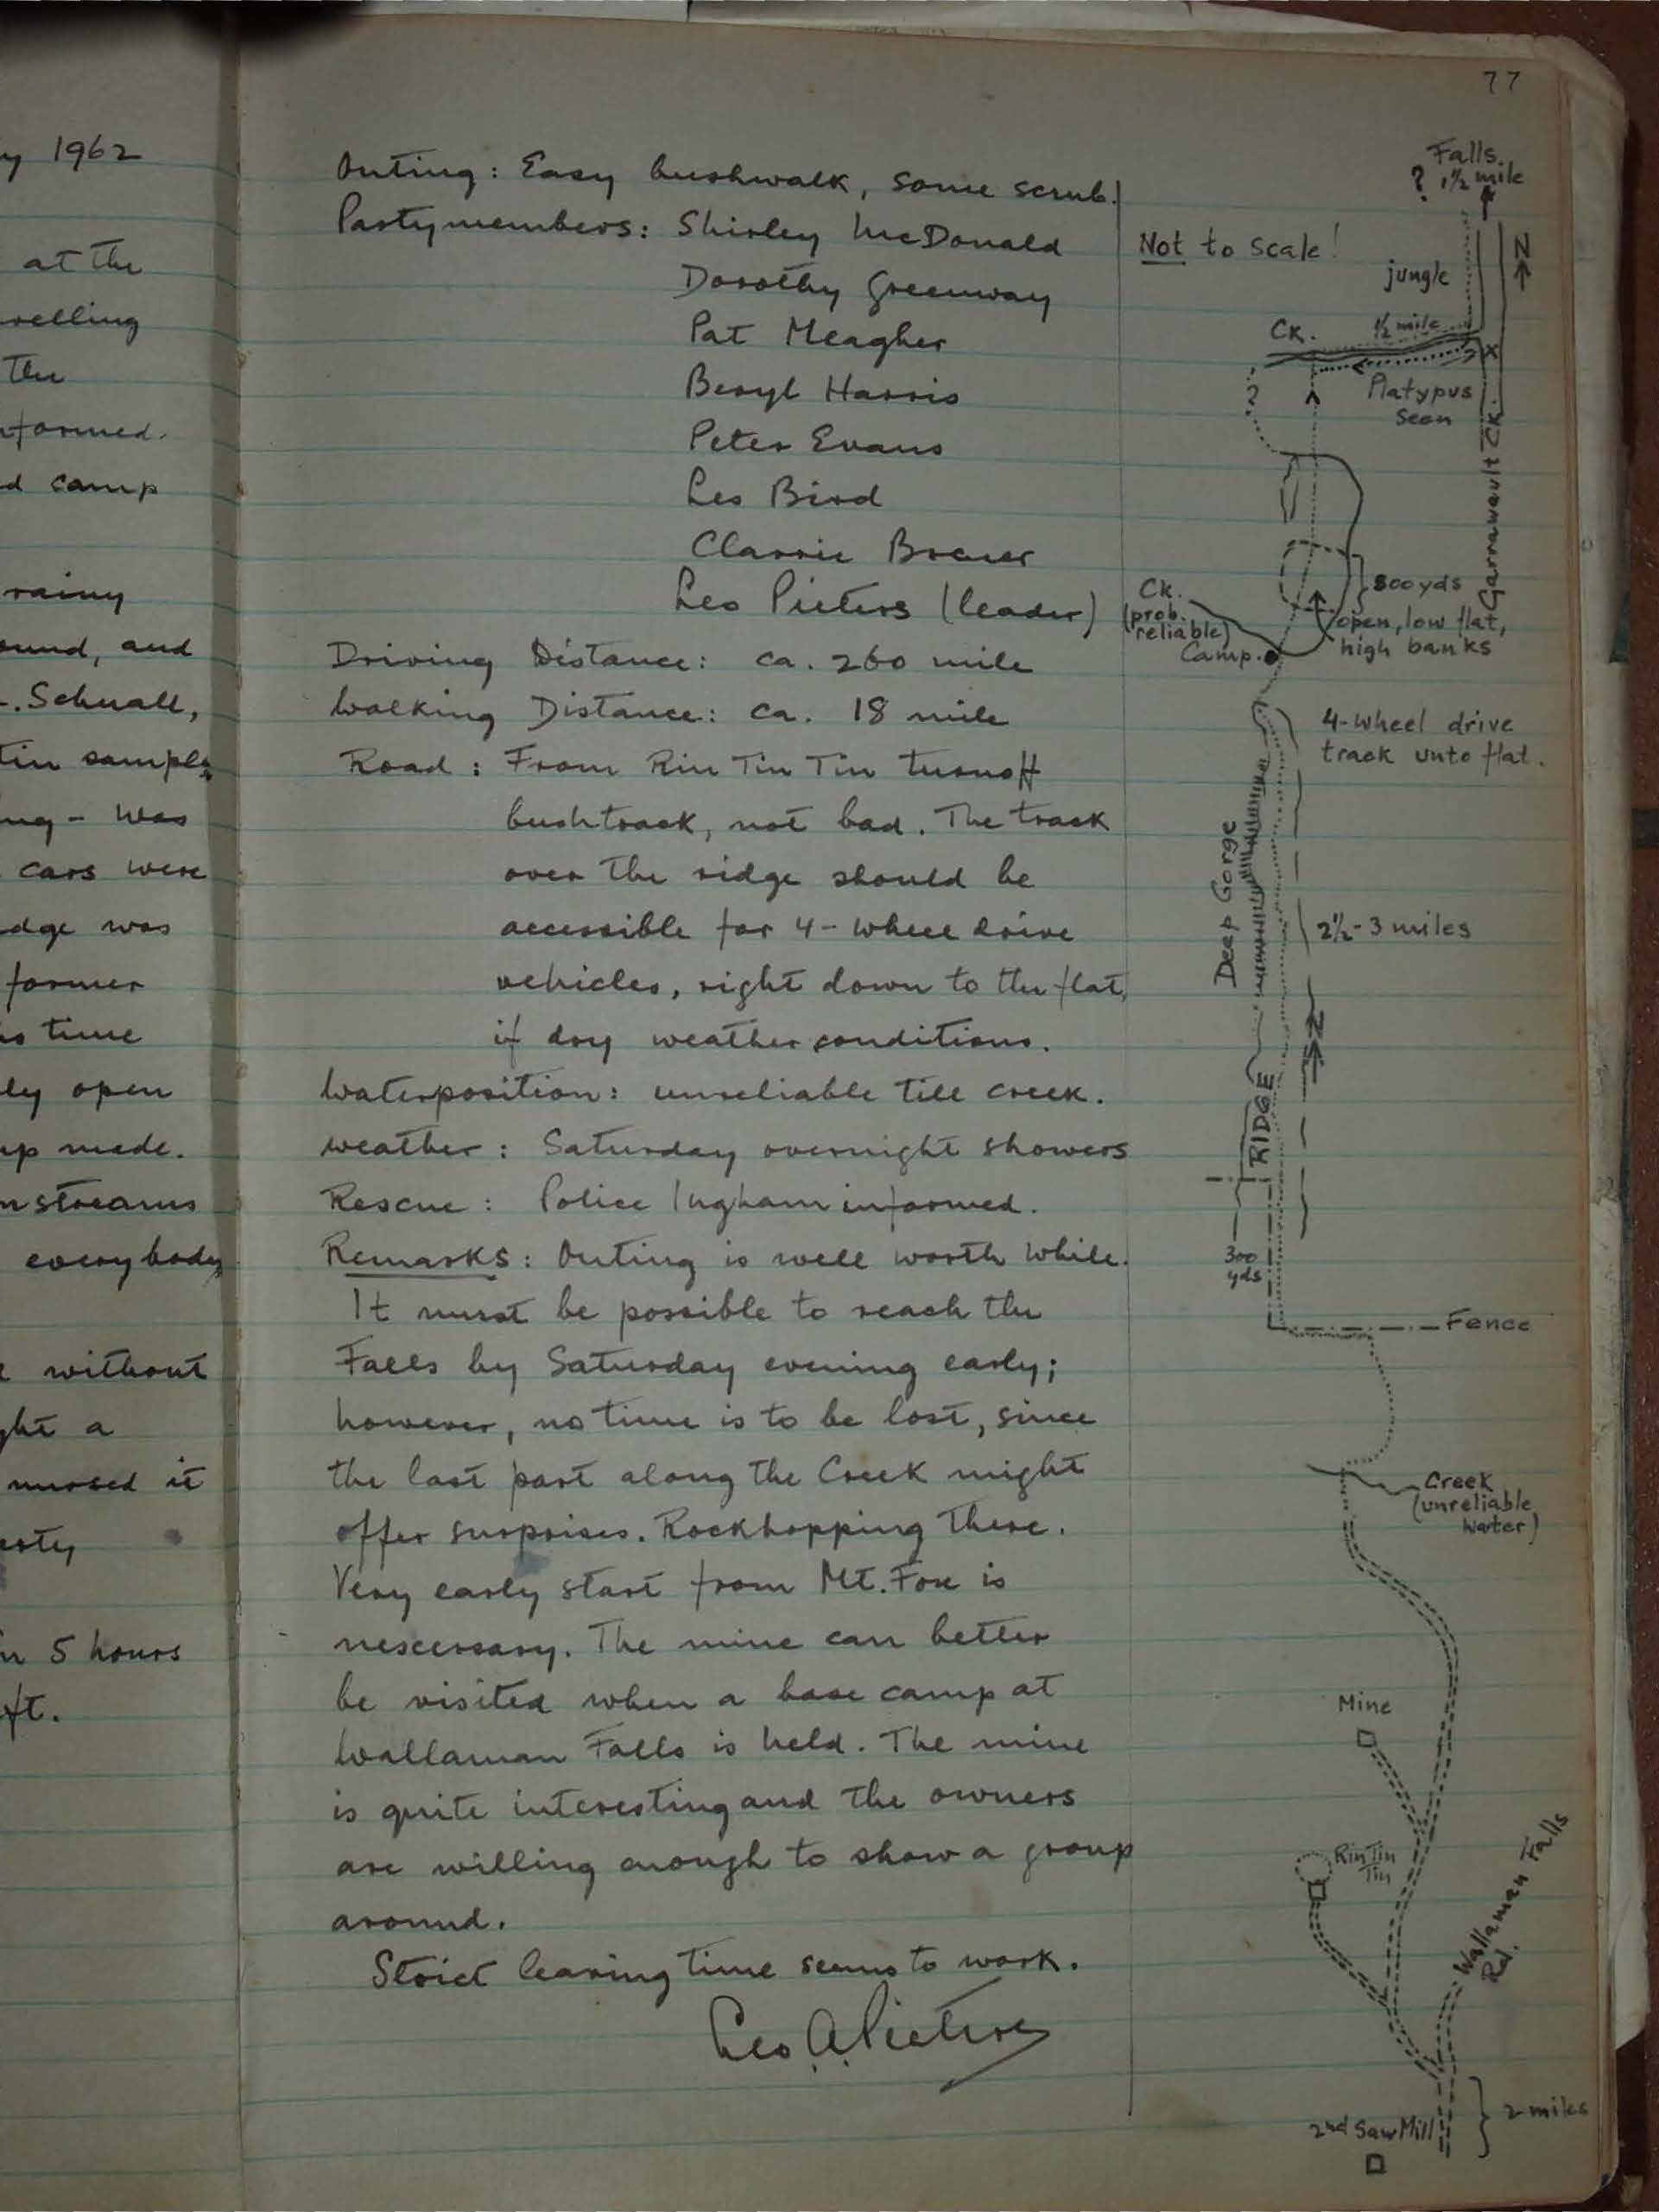 77
y 1962
at the
velling
the
nformed.
d camp
rainy
ound, and
. Schuall,
tin sample
ng - was
cars were
dge was
former
time
ly open
up made.
n streams
everybody
without
ght a
nursed it
arty
n 5 hours
ft.
Outing: Easy bushwalk, some scrub.
Partymembers: Shirley McDonald
Dorothy Greenway
Pat Meagher
Beryl Harris
Peter Evans
Les Bird
Clarrie Brewer
Leo Pieters (leader)
Driving Distance: ca. 260 mile
Walking Distance: ca. 18 mile
Road: From Rin Tin Tin turnoff
bushtrack, not bad. The track
over the ridge should be
accessible for 4-wheel drive
vehicles, right down to the flat,
if dry weather conditions.
Waterposition: unreliable till creek.
Weather: Saturday overnight showers
Rescue: Police Ingham informed.
Remarks: Outing is well worth while.
It must be possible to reach the
Falls by Saturday evening early;
however, no time is to be lost, since
the last part along the Creek might
offer surprises. Rockhopping there.
Very early start from Mt. Fox is
nescessary. The mine can better
be visited when a base camp at
Wallaman Falls is held. The mine
is quite interesting and the owners
are willing enough to show a group
around.
Strict leaving time seems to work.
Leo A. Pieters
Falls.
? 1½ mile
Not to scale!
N
jungle
Ck. ½ mile
x
?
Platypus
seen
Garrawault Ck.
800 yds
Ck.
(prob.
reliable)
open, low flat,
high banks
Camp.
4-wheel drive
track unto flat.
Deep Gorge
2½-3 miles
N
RIDGE
300
yds
Fence
Creek
(unreliable
water)
Mine
Rin Tin
Tin
Wallaman Falls
Rd.
2nd Saw Mill
2 miles